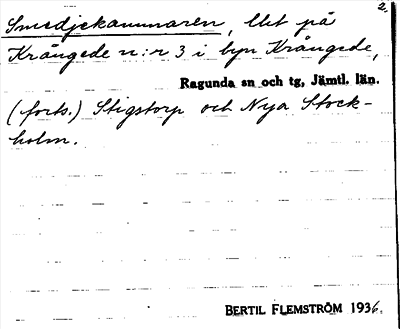 2.
Smedjekammaren, llet på
Krångede n:r 3 i byn Krångede,
Ragunda sn och tg, Jämtl. län.
(forts.) Stigstorp och Nya Stock-
holm.
BERTIL FLEMSTRÖM 1936.